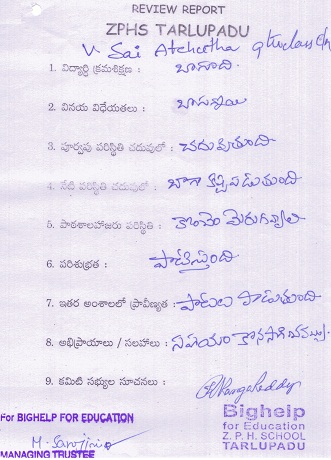 REVIEW REPORT
ZPHS TARLUPADU
V Sai Atchutha 9th class E/M
1. విద్యార్థి క్రమశిక్షణ : బాగుంది.
2. వినయ విధేయతలు : బాగున్నాయి
3. పూర్వపు పరిస్థితి చదువులో : చదువుతుంది
4. నేటి పరిస్థితి చదువులో : బాగా కష్టపడుతుంది
5. పాఠశాలహాజరు పరిస్థితి : కొంచెం మెరుగవ్వాలి
6. పరిశుభ్రత : పాటిస్తుంది
7. ఇతర అంశాలలో ప్రావీణ్యత : పాటలు పాడుతుంది
8. అభిప్రాయాలు / సలహాలు : సహాయం కొనసాగించవచ్చు.
9. కమిటి సభ్యుల సూచనలు :
For BIGHELP FOR EDUCATION
M. Sarojini
MANAGING TRUSTEE
Bighelp
for Education
Z. P. H. SCHOOL
TARLUPADU